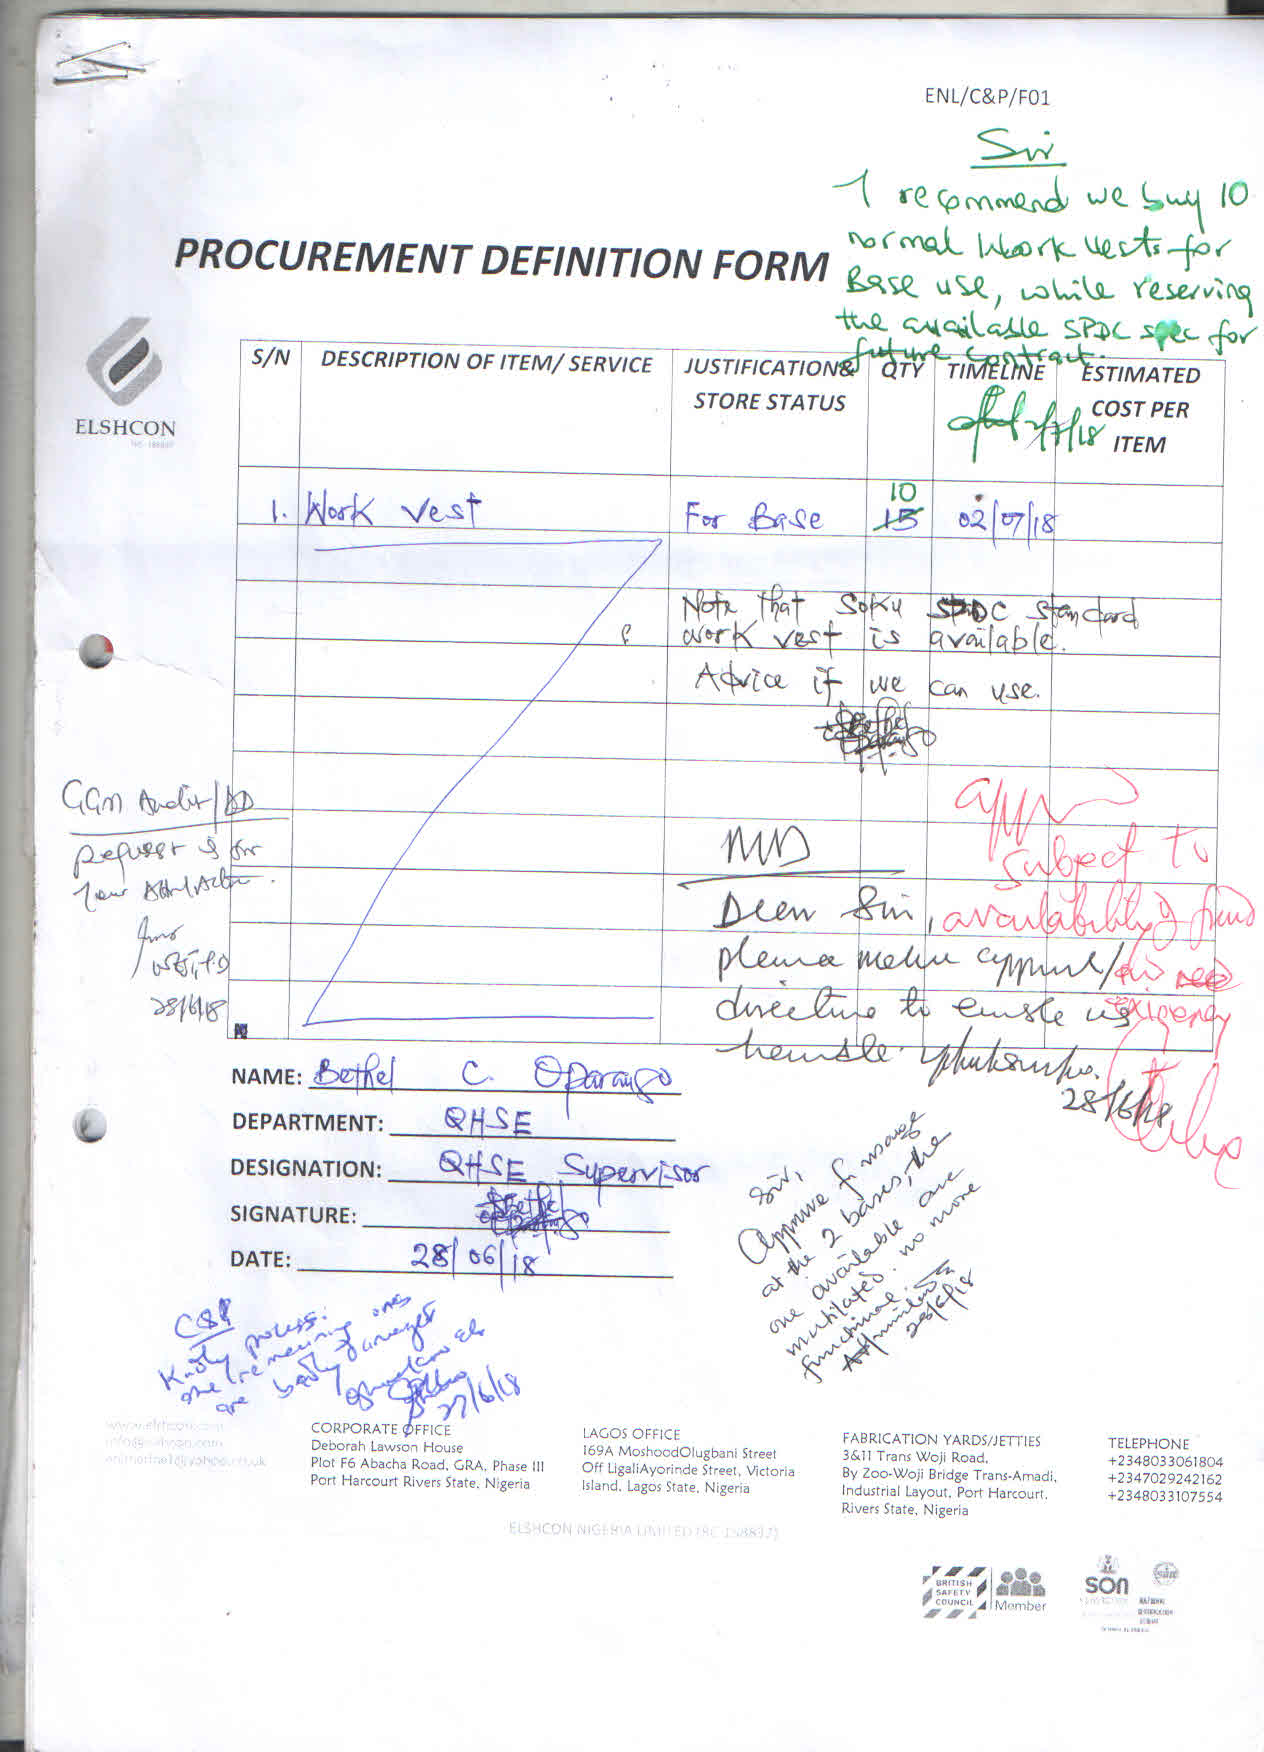 ENL/C&P/F01
Sir
I recommend we buy 10
normal Work Vests for
Base use, while reserving
the available SPDC spec for
future contract.
2/7/18
PROCUREMENT DEFINITION FORM
ELSHCON
S/N DESCRIPTION OF ITEM/ SERVICE JUSTIFICATION& STORE STATUS QTY TIMELINE ESTIMATED COST PER ITEM
10
1. Work Vest For Base 15 02/07/18
Note that Soku SPDC standard
work vest is available.
Advice if we can use.
GGM Audit/
request is for
your
28/6/18
MD
Dear Sir,
please make approval/
directive to enable us
handle.
28/6/18
subject to
availability of fund
exigency
NAME: Bethel C. Oparaugo
DEPARTMENT: QHSE
DESIGNATION: QHSE Supervisor
SIGNATURE:
DATE: 28/06/18
Sir,
Approve for usage
at the 2 bases, the
one available are
mutilated. no more
functional.
28/6/18
C&P
Kindly process.
the remaining ones
are badly damaged
27/6/18
www.elshcon.com
CORPORATE OFFICE
Deborah Lawson House
Plot F6 Abacha Road, GRA, Phase III
Port Harcourt Rivers State, Nigeria
LAGOS OFFICE
169A MoshoodOlugbani Street
Off LigaliAyorinde Street, Victoria
Island, Lagos State, Nigeria
FABRICATION YARDS/JETTIES
3&11 Trans Woji Road,
By Zoo-Woji Bridge Trans-Amadi,
Industrial Layout, Port Harcourt,
Rivers State, Nigeria
TELEPHONE
+2348033061804
+2347029242162
+2348033107554
ELSHCON NIGERIA LIMITED (RC 158837)
BRITISH
SAFETY
COUNCIL
Member
SON